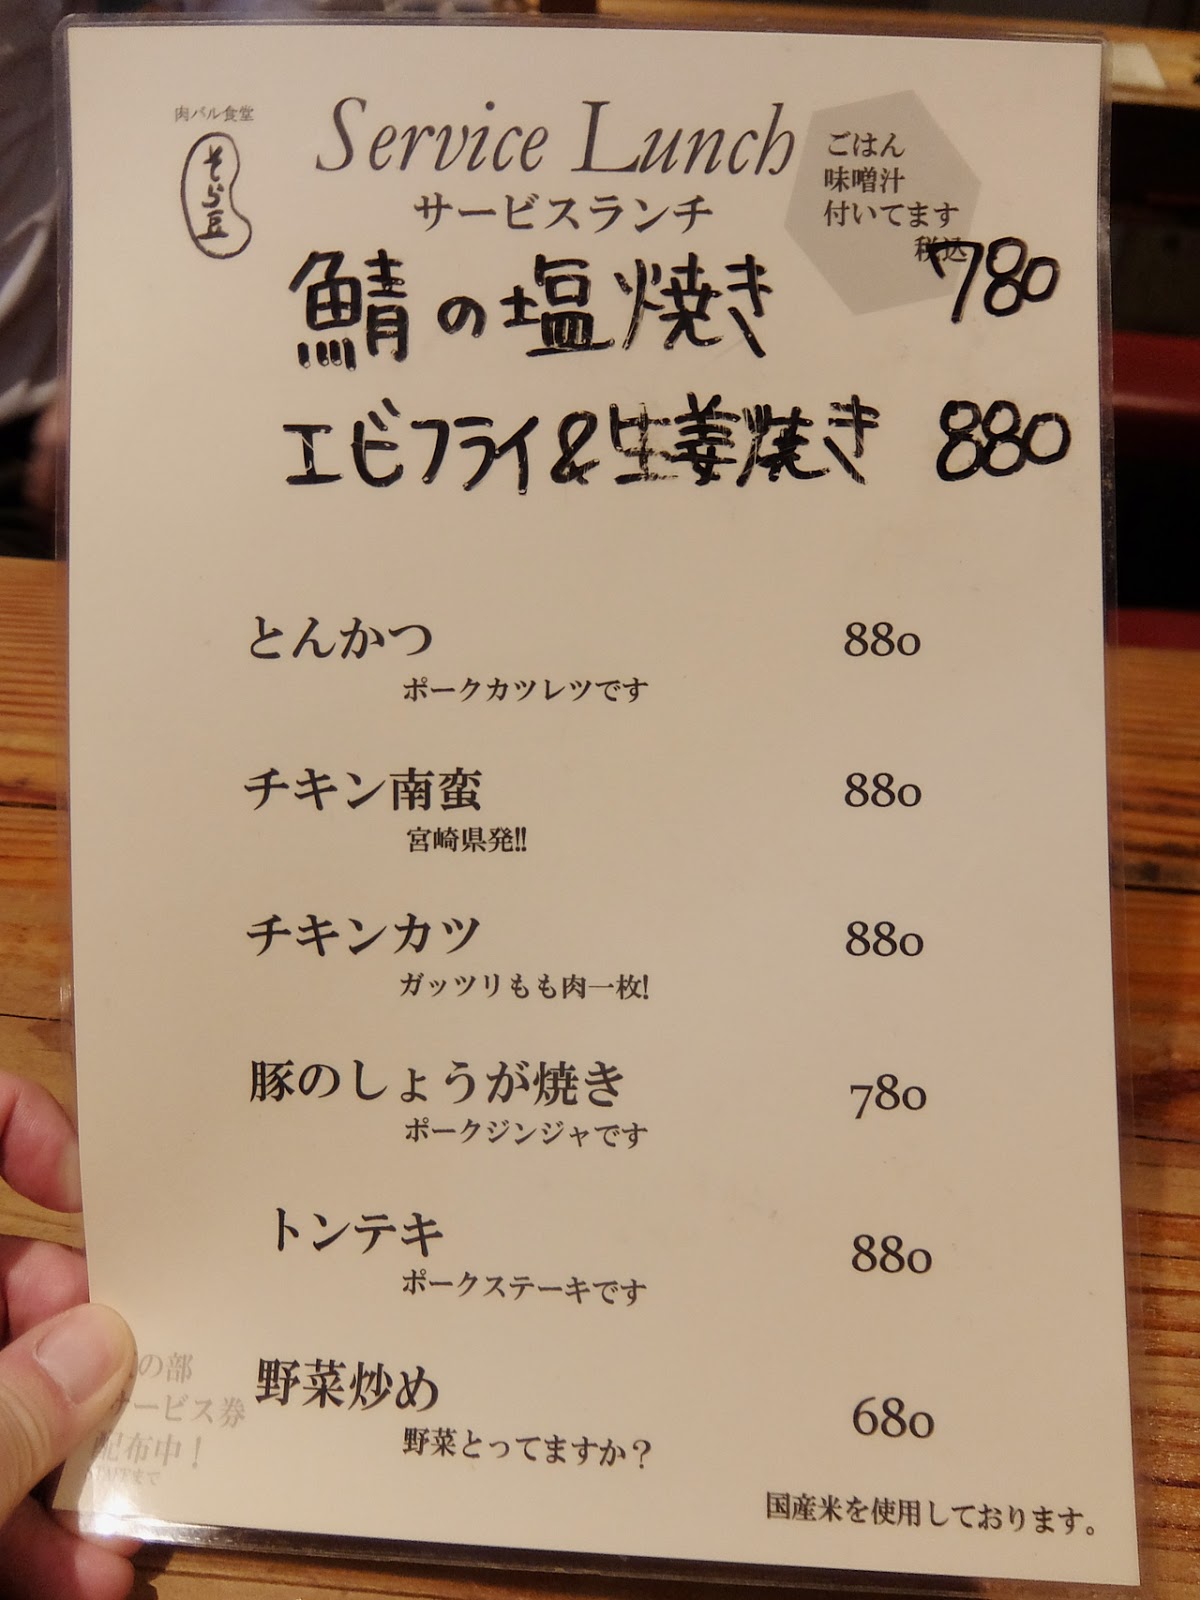 肉バル食堂
そら豆
Service Lunch
サービスランチ
ごはん
味噌汁
付いてます
税込
鯖の塩焼き 780
エビフライ&生姜焼き 880
とんかつ 880
ポークカツレツです
チキン南蛮 880
宮崎県発!!
チキンカツ 880
ガッツリもも肉一枚!
豚のしょうが焼き 780
ポークジンジャです
トンテキ 880
ポークステーキです
野菜炒め 680
野菜とってますか？
の部
サービス券
配布中！
まで
国産米を使用しております。